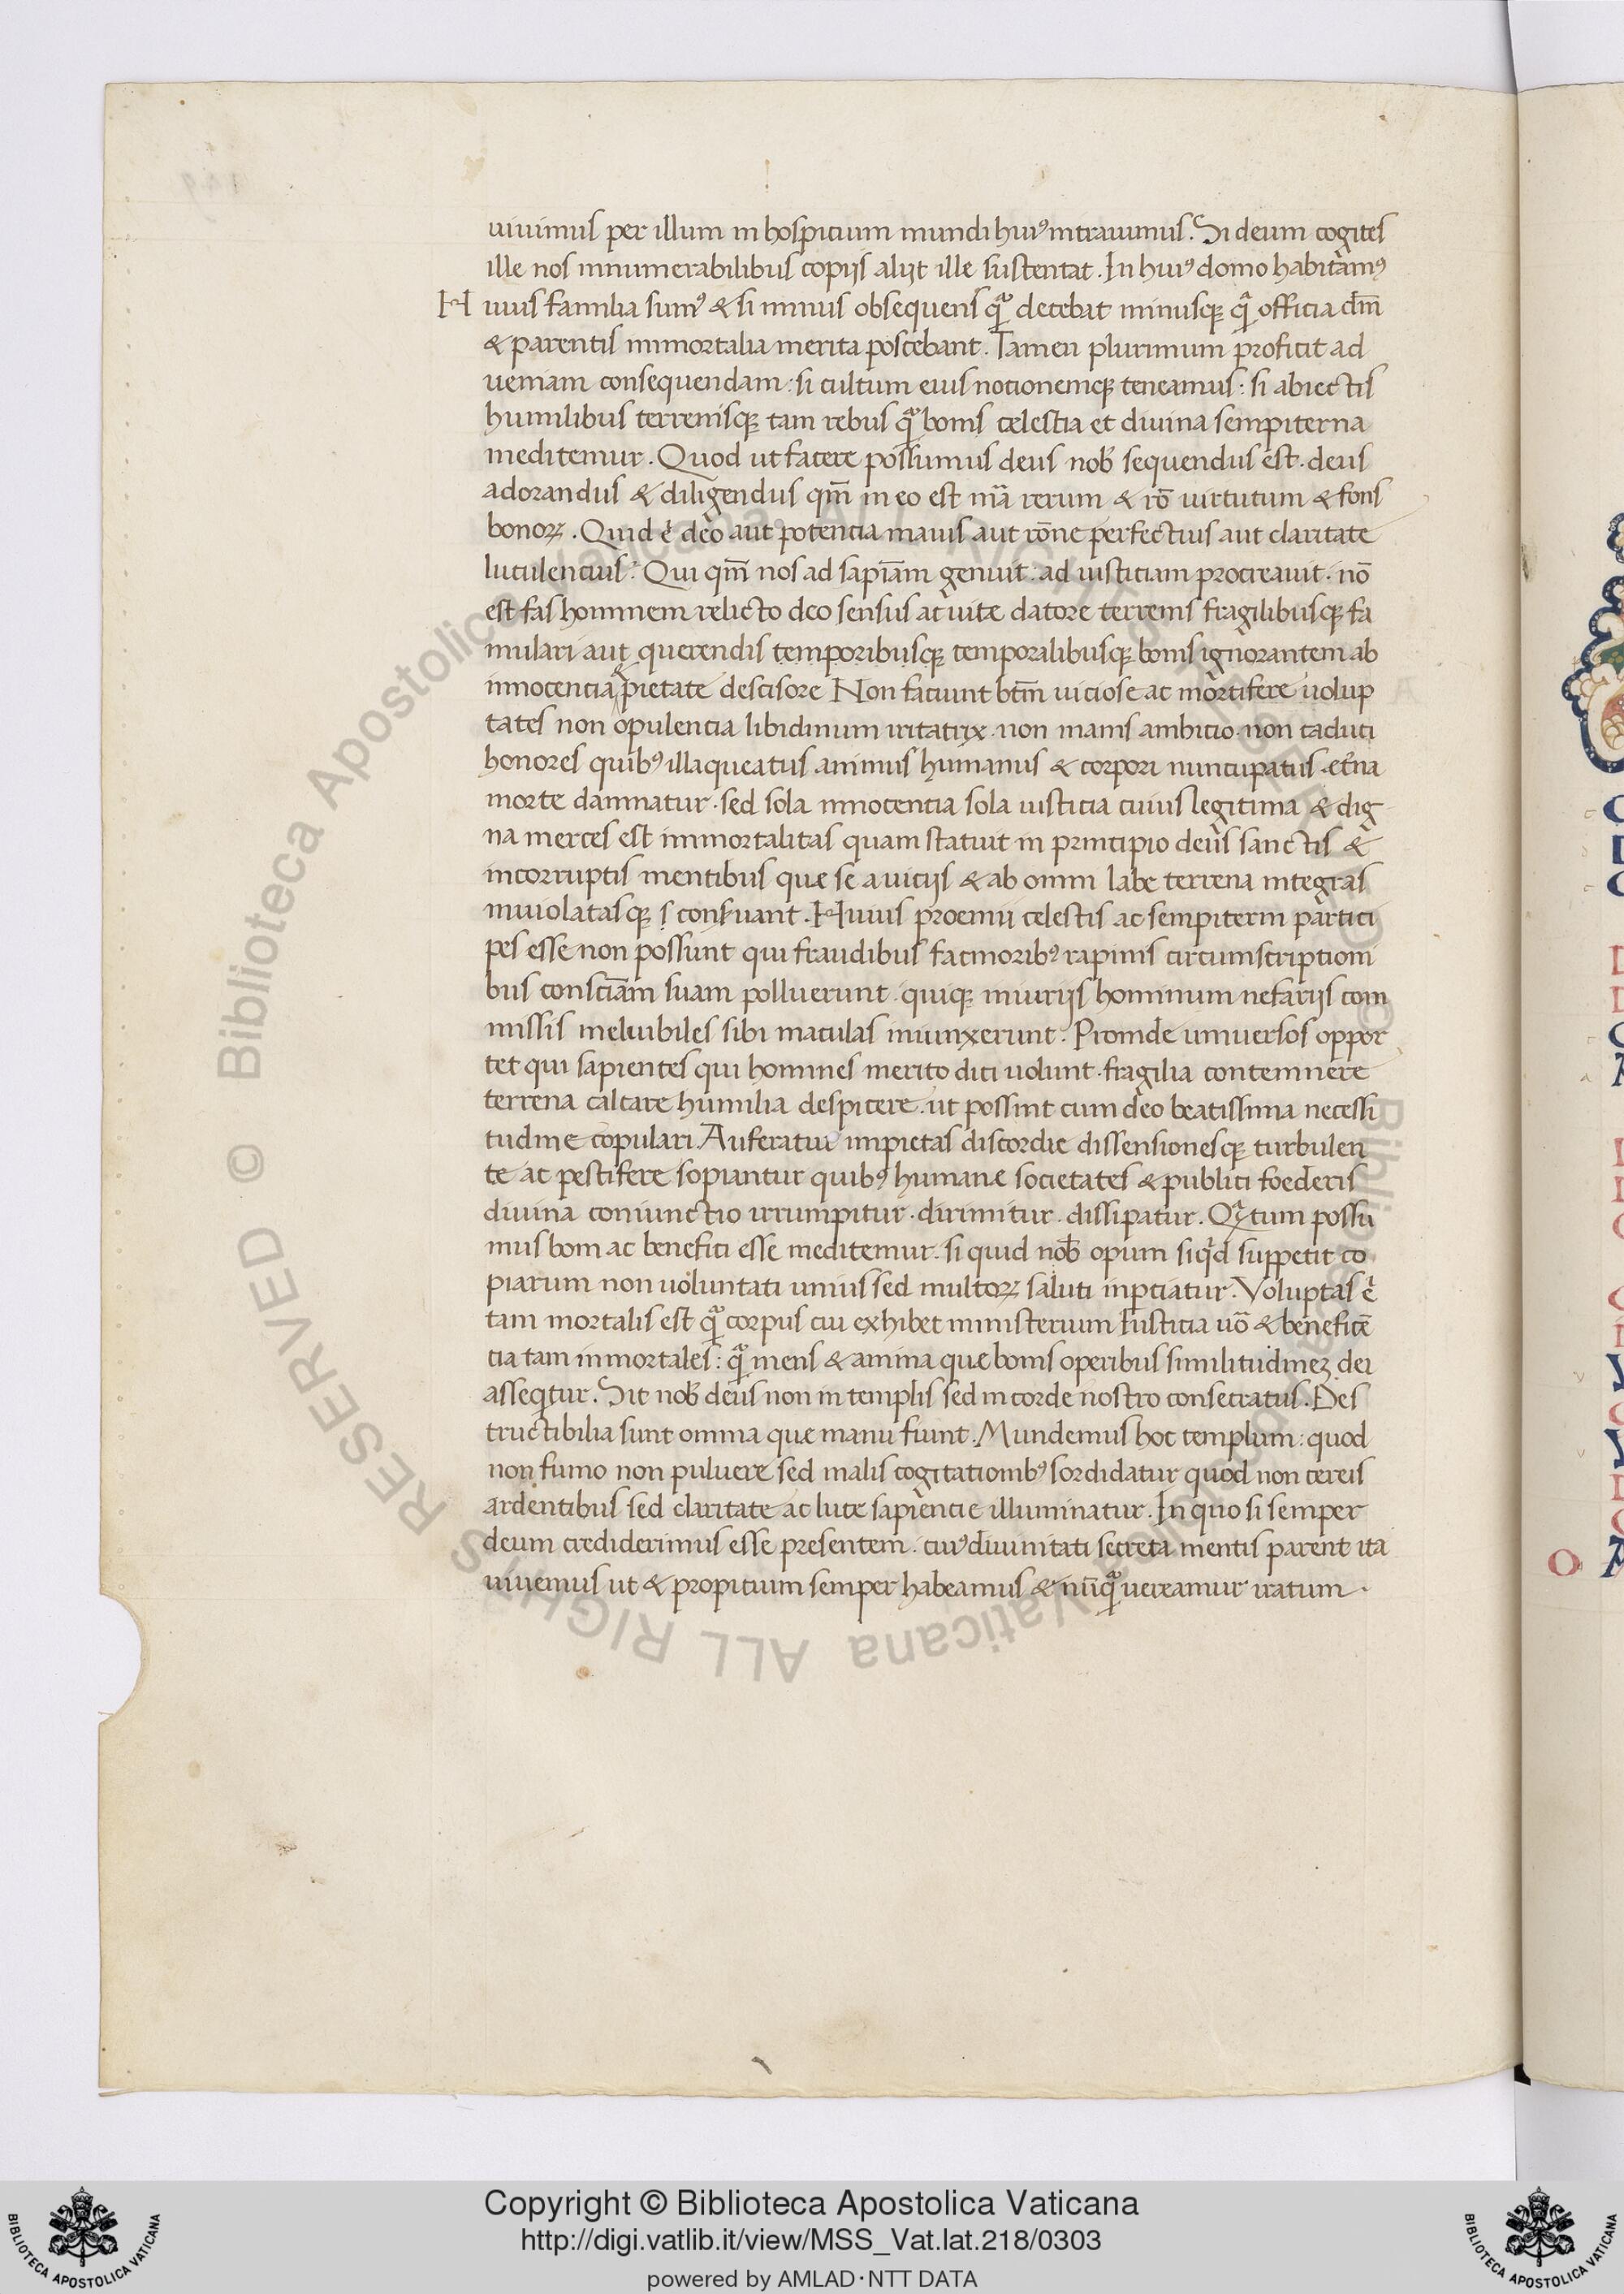 uiuimus per illum in hospicium mundi huiꝰ intrauimus. Si deum cogites
ille nos innumerabilibus copijs aliit ille sustentat. In huiꝰ domo habitamꝰ
Huius familia sumꝰ & si minus obsequens qᷓ decebat minusqꝫ qᷓ officia dm̄
& parentis immortalia merita poscebant. Tamen plurimum proficit ad
ueniam consequendam: si cultum eius nocionemqꝫ teneamus: si abiectis
humilibus terrenisqꝫ tam rebus qᷓ bonis celestia et diuina sempiterna
meditemur. Quod ut facere possumus deus nob̄ sequendus est. deus
adorandus & diligendus qm̄ in eo est mᷓa rerum & rō uirtutum & fons
bonoꝝ. Quid ē deo aut potencia maius aut rōne perfectius aut claritate
luculencius: Qui qm̄ nos ad sapiām genuit. ad iusticiam procreauit. nō
est fas hominem relicto deo sensus ac uite datore terrenis fragilibusqꝫ fa
mulari aut querendis temporibusqꝫ temporalibusqꝫ bonis ignorantem ab
innocencia & pietate descisore Non faciunt btm̄ uiciose ac mortifere uolup
tates non opulencia libidinum iritatrix. non inanis ambicio. non caduci
honores quibꝰ illaqueatus animus humanus & corpori nuncupatus et̄na
morte damnatur. sed sola innocencia sola iusticia cuius legitima & dig
na merces est immortalitas quam statuit in principio deus sanctis &
incorruptis mentibus que se a uicijs & ab omni labe terrena integras
inuiolatasqꝫ s conẜuant. Huius proemii celestis ac sempiterni partici
pes esse non possunt qui fraudibus facinoribꝰ rapinis circumscriptioni
bus consciām suam polluerunt. quiqꝫ iniurijs hominum nefarijs com
missis ineluibiles sibi maculas iniunxerunt. Proinde uniuersos oppor
tet qui sapientes qui homines merito dici uolunt. fragilia contemnere
terrena calcare humilia despicere. ut possint cum deo beatissima necessi
tudine copulari. Auferatur impietas discordie dissensionesqꝫ turbulen
te ac pestifere sopiantur quibꝰ humane societates & publici foederis
diuina coniunctio irrumpitur. dirimitur. dissipatur. Qᷓtum possu
mus boni ac benefici esse meditemur. si quid nob̄ opum siqͥd suppetit co
piarum non uoluntati unius sed multoꝝ saluti inꝑciatur. Voluptas ē
tam mortalis est qᷓ corpus cui exhibet ministerium Iusticia uō & beneficē
cia tam inmortales: qᷓ mens & amina que bonis operibus similitudineꝫ dei
asseqͥtur. Sit nob̄ deus non in templis sed in corde nostro consecratus. Des
tructibilia sunt omnia que manu fiunt. Mundemus hoc templum: quod
non fumo non puluere sed malis cogitationibꝰ sordidatur quod non cereis
ardentibus sed claritate ac luce sapiencie illuminatur. In quo si semper
deum crediderimus esse presentem. cuiꝰ diuinitati secreta mentis parent ita
uiuemus ut & propicium semper habeamus & nūqᷓ uereamur iratum.
O
© Biblioteca Apostolica Vaticana ALL RIGHTS RESERVED
Copyright © Biblioteca Apostolica Vaticana
http://digi.vatlib.it/view/MSS_Vat.lat.218/0303
powered by AMLAD·NTT DATA
BIBLIOTECA APOSTOLICA VATICANA
BIBLIOTECA APOSTOLICA VATICANA